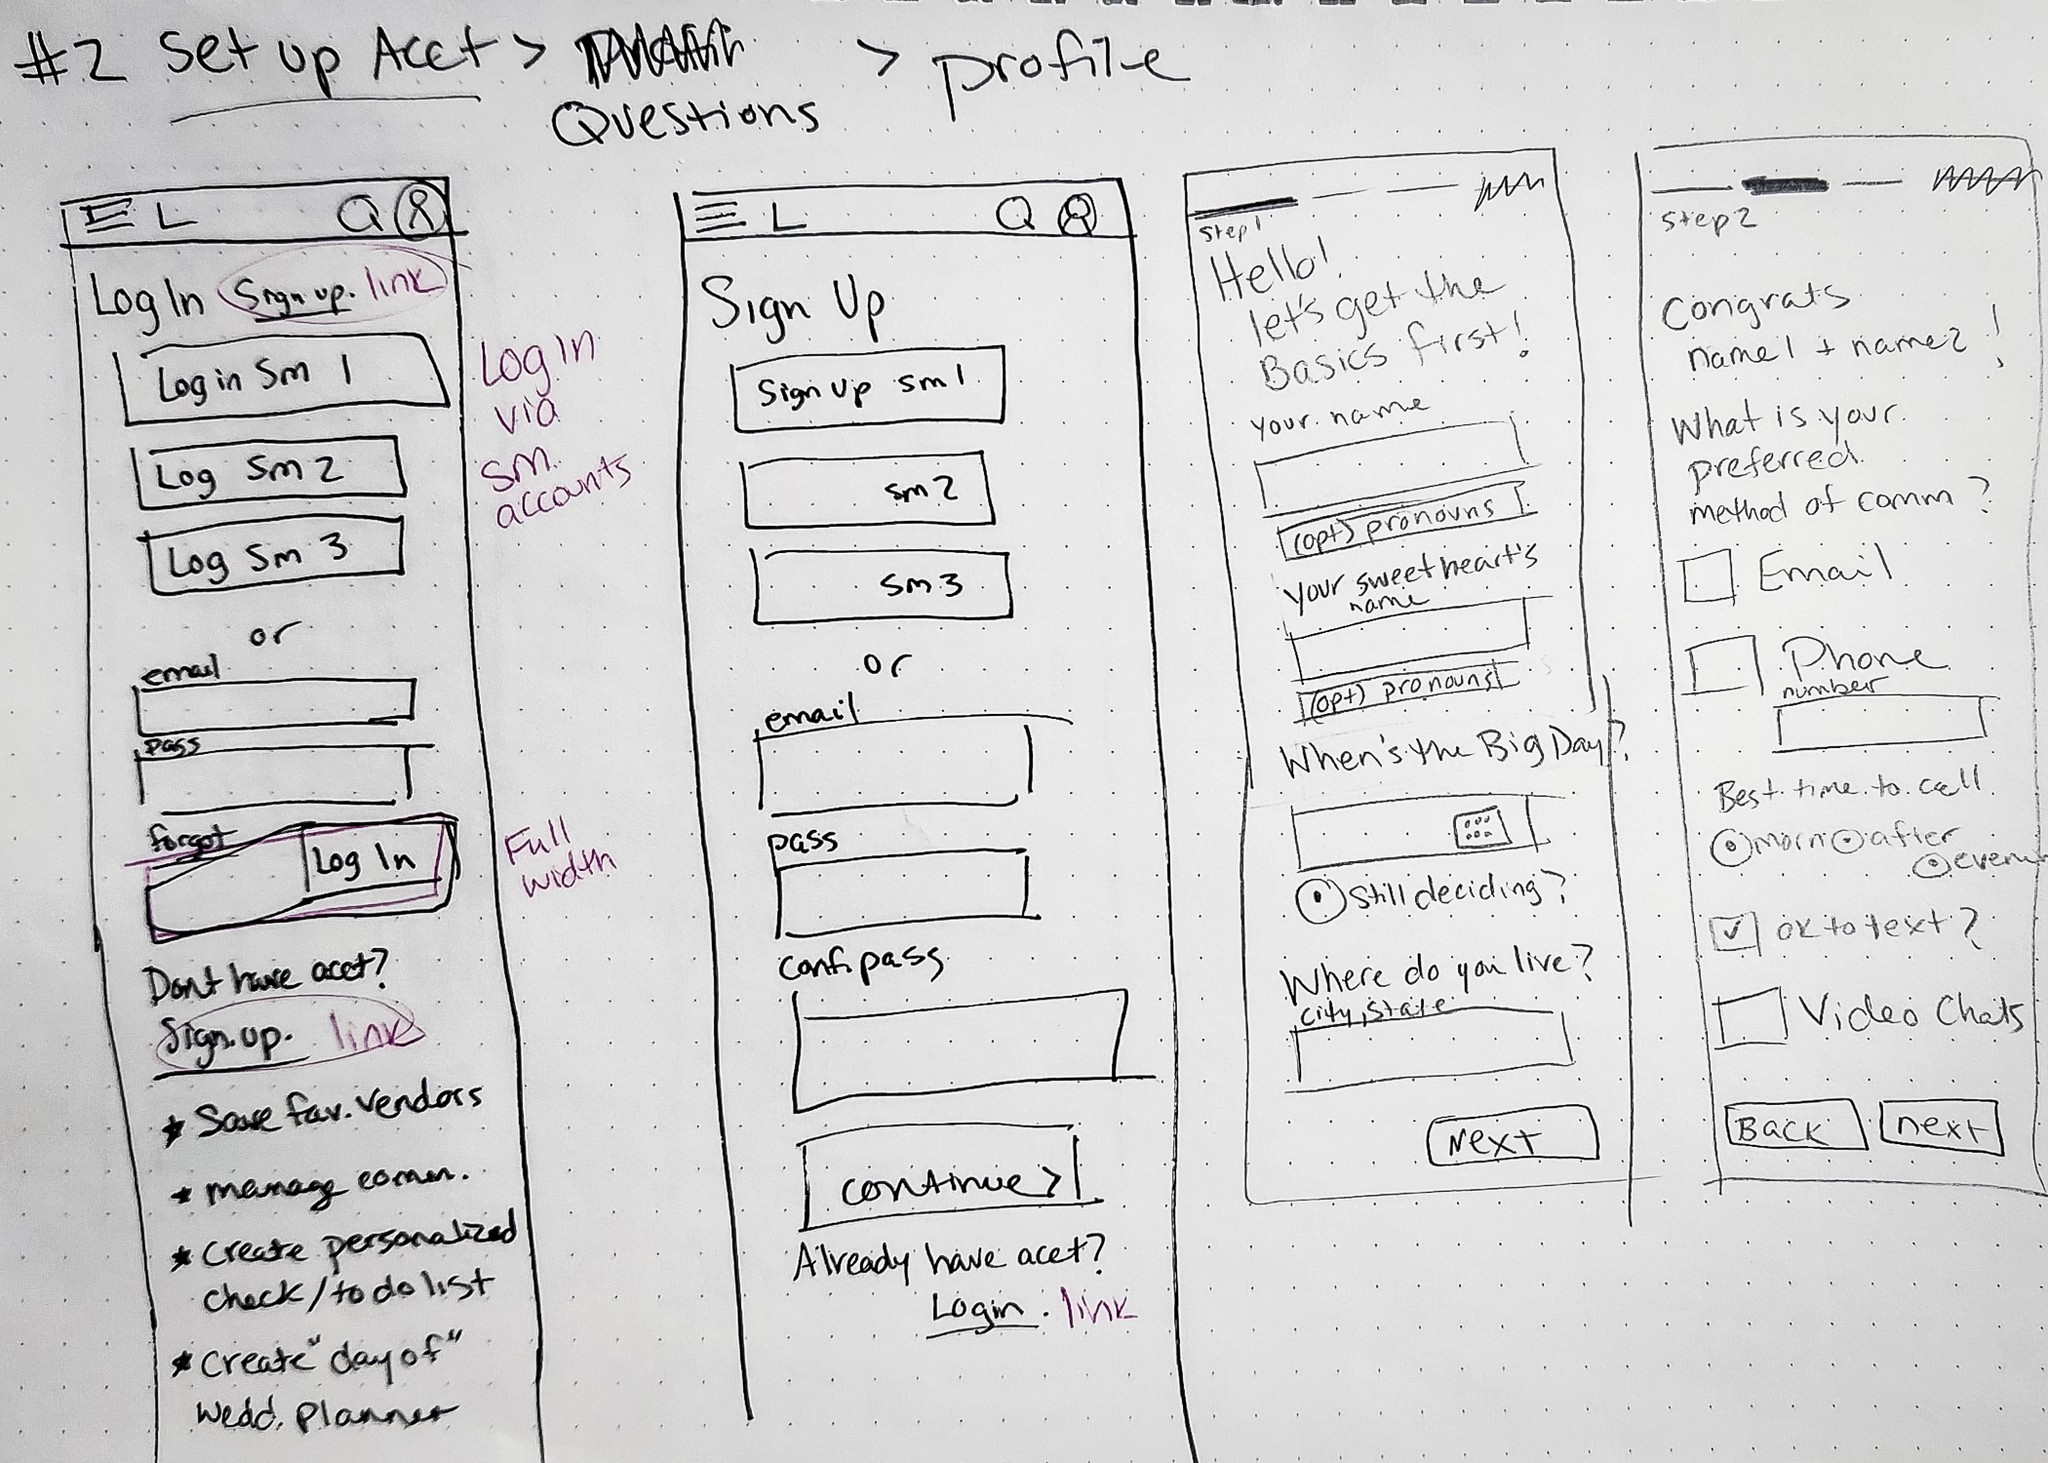 #2 Set up Acct > > profile
Questions
L
Log In Sign up. link
Log in Sm 1
Log Sm 2
Log Sm 3
or
email
pass
forgot
Log In
Dont have acct?
Sign up. link
* Save fav. vendors
* manage comm.
* create personalized
check/to do list
* create "day of"
wedd. planner
Log In
via
sm
accounts
Full
width
L
Sign Up
Sign Up sm 1
sm 2
sm 3
or
email
pass
conf. pass
continue >
Already have acct?
Login. link
Step 1
Hello!
let's get the
Basics first!
your name
(opt) pronouns
your sweetheart's
name
(opt) pronouns
When's the Big Day?
still deciding?
Where do you live?
city, state
Next
Step 2
Congrats
name 1 + name 2!
What is your
preferred
method of comm?
Email
Phone
number
Best time to call
morn after
ok to text?
Video Chats
Back next